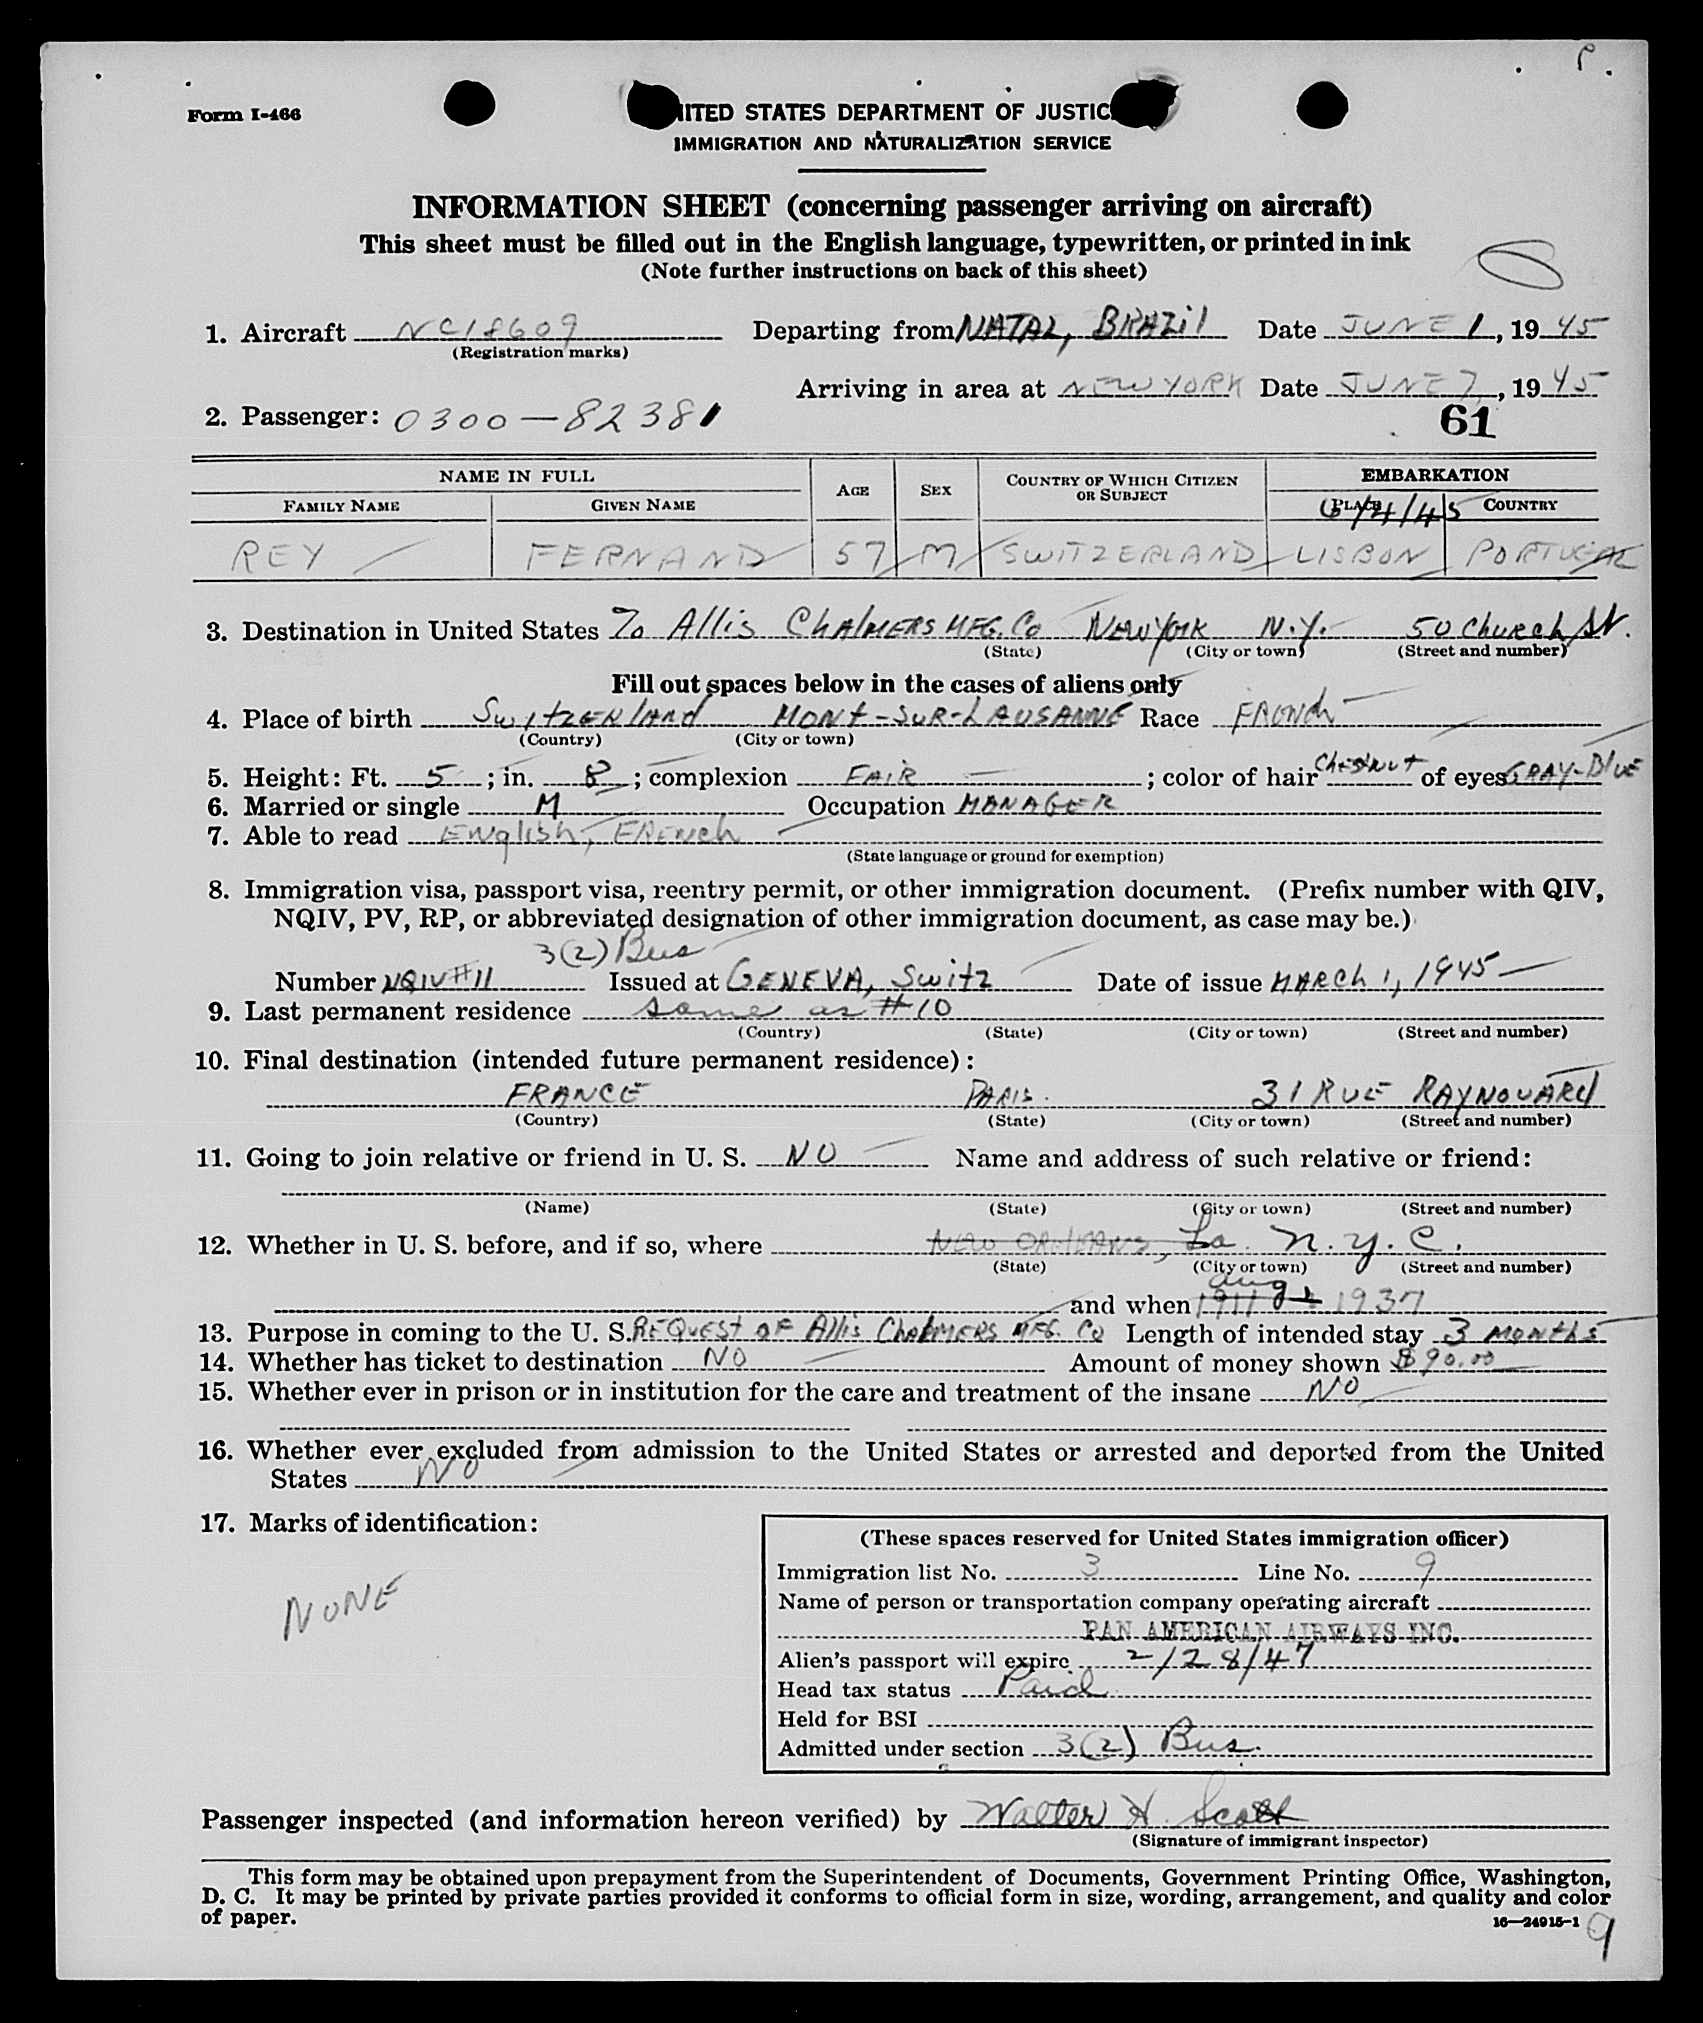 Form I-466
UNITED STATES DEPARTMENT OF JUSTICE
IMMIGRATION AND NATURALIZATION SERVICE
INFORMATION SHEET (concerning passenger arriving on aircraft)
This sheet must be filled out in the English language, typewritten, or printed in ink
(Note further instructions on back of this sheet)
1. Aircraft NC18609 Departing from NATAL, BRAZil Date JUNE 1, 1945
(Registration marks)
Arriving in area at NEW YORK Date JUNE 7, 1945
2. Passenger: 0300-82381 61
NAME IN FULL Age Sex Country of Which Citizen or Subject EMBARKATION
Family Name Given Name Place Country
6/4/45
REY FERNAND 57 M SWITZERLAND LISBON PORTUGAL
3. Destination in United States To Allis CHALMERS MFG. Co NEW YORK N.Y. 50 Church St.
(State) (City or town) (Street and number)
Fill out spaces below in the cases of aliens only
4. Place of birth Switzerland MONT-SUR-LAUSANNE Race FRENCH
(Country) (City or town)
5. Height: Ft. 5; in. 8; complexion FAIR; color of hair Chestnut of eyes GRAY-BlUE
6. Married or single M Occupation MANAGER
7. Able to read English, FRENCH
(State language or ground for exemption)
8. Immigration visa, passport visa, reentry permit, or other immigration document. (Prefix number with QIV,
NQIV, PV, RP, or abbreviated designation of other immigration document, as case may be.)
3(2) Bus
Number NQIV #11 Issued at GENEVA, Switz Date of issue MARCh 1, 1945
9. Last permanent residence Same as #10
(Country) (State) (City or town) (Street and number)
10. Final destination (intended future permanent residence):
FRANCE PARIS. 31 RUE RAYNOUARD
(Country) (State) (City or town) (Street and number)
11. Going to join relative or friend in U. S. NO Name and address of such relative or friend:
(Name) (State) (City or town) (Street and number)
12. Whether in U. S. before, and if so, where NEW ORLEANS, La. N.Y.C.
(State) (City or town) (Street and number)
Aug
and when 1911 1937
13. Purpose in coming to the U. S. REQUEST OF Allis CHALMERS MFG. Co Length of intended stay 3 MONTHS
14. Whether has ticket to destination NO Amount of money shown $90.00
15. Whether ever in prison or in institution for the care and treatment of the insane NO
16. Whether ever excluded from admission to the United States or arrested and deported from the United
States NO
17. Marks of identification:
NONE
(These spaces reserved for United States immigration officer)
Immigration list No. 3 Line No. 9
Name of person or transportation company operating aircraft
PAN AMERICAN AIRWAYS INC.
Alien's passport will expire 2/28/47
Head tax status Paid
Held for BSI
Admitted under section 3(2) Bus.
Passenger inspected (and information hereon verified) by Walter H. Scott
(Signature of immigrant inspector)
This form may be obtained upon prepayment from the Superintendent of Documents, Government Printing Office, Washington,
D. C. It may be printed by private parties provided it conforms to official form in size, wording, arrangement, and quality and color
of paper.
16—24915-1
9